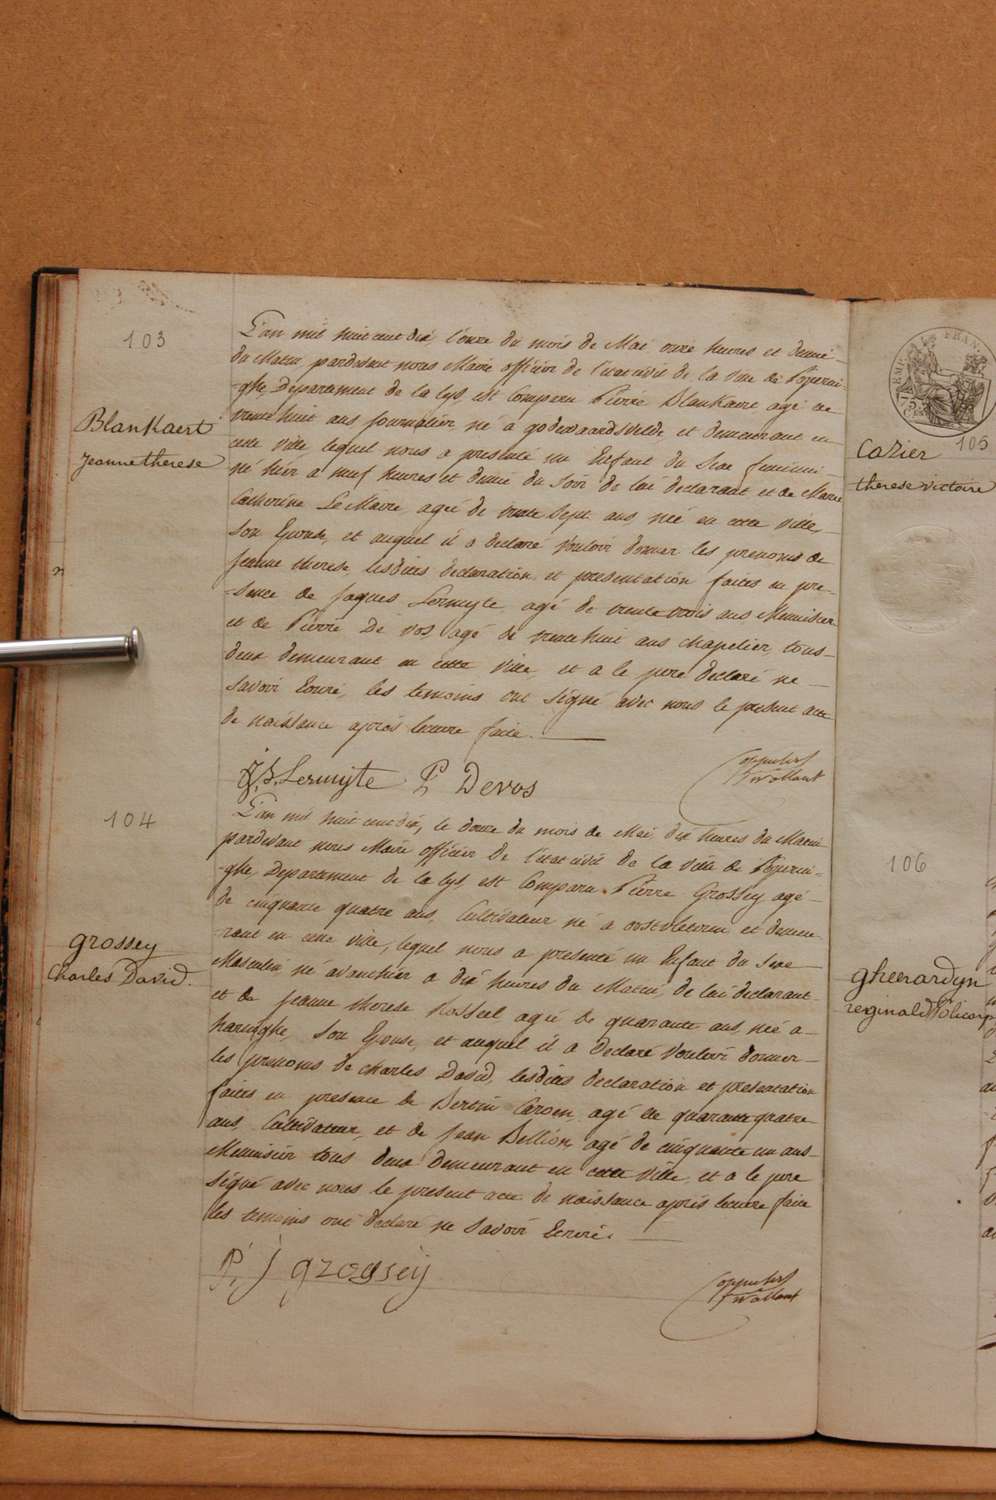 103
Blankaert
Jeanne therese
L'an mil huit cent dix l'onze du mois de Mai onze heures et demie
du Matin pardevant nous Maire officier de l'etat civil de la ville de Poperin-
-ghe, Departement de la Lys, est Comparu Pierre Blankaert agé de
trente huit ans journalier, né à godewaardsvelde et demeurant en
cette ville lequel nous a presenté un Enfant du Sexe feminin
né hier a neuf heures et demie du Soir de lui declarant et de Marie
Catherine Le Maire agée de trente Sept ans née en cette ville,
Son Epouse, et auquel il a declaré vouloir donner les prenoms de
Jeanne therese lesdites declaration et presentation faites en pre-
-sence de Jaques Lermyte agé de trente trois ans Menuisier
et de Pierre De vos agé de trente huit ans chapelier, tous
deux demeurant en cette ville, et a le pere declaré ne
Savoir Ecrire, les temoins ont Signé avec nous le present acte
de naissance après lecture faite.
J. B. Lermijte P Devos
104
grossey
Charles David.
L'an mil huit cent dix, le douze du mois de Mai dix heures du Matin
pardevant nous Maire officier de l'etat civil de la ville de Poperin-
-ghe, Departement de la Lys, est Comparu Pierre Grossey agé
de cinquante quatre ans, Cultivateur né a oostvleteren et demeu-
-rant en cette ville, lequel nous a presenté un Enfant du Sexe
Masculin né avant hier a dix heures du Matin, de lui declarant
et de Jeanne therese Rosseel agée de quarante ans, née a
haringhe, Son Epouse, et auquel il a Declaré vouloir donner
les prenoms de Charles David, lesdites declaration et presentation
faites en presence de Bertin Caroen, agé de quarante quatre
ans, Cultivateur, et de Jean Bellion, agé de cinquante un ans
Menuisier tous deux demeurant en cette ville, et a le pere
Signé avec nous le present acte de naissance après lecture faite
les temoins ont declaré ne Savoir Ecrire.
P J grossey
105
Cazier
therese victoire
106
gheerardyn
reginald Policarp